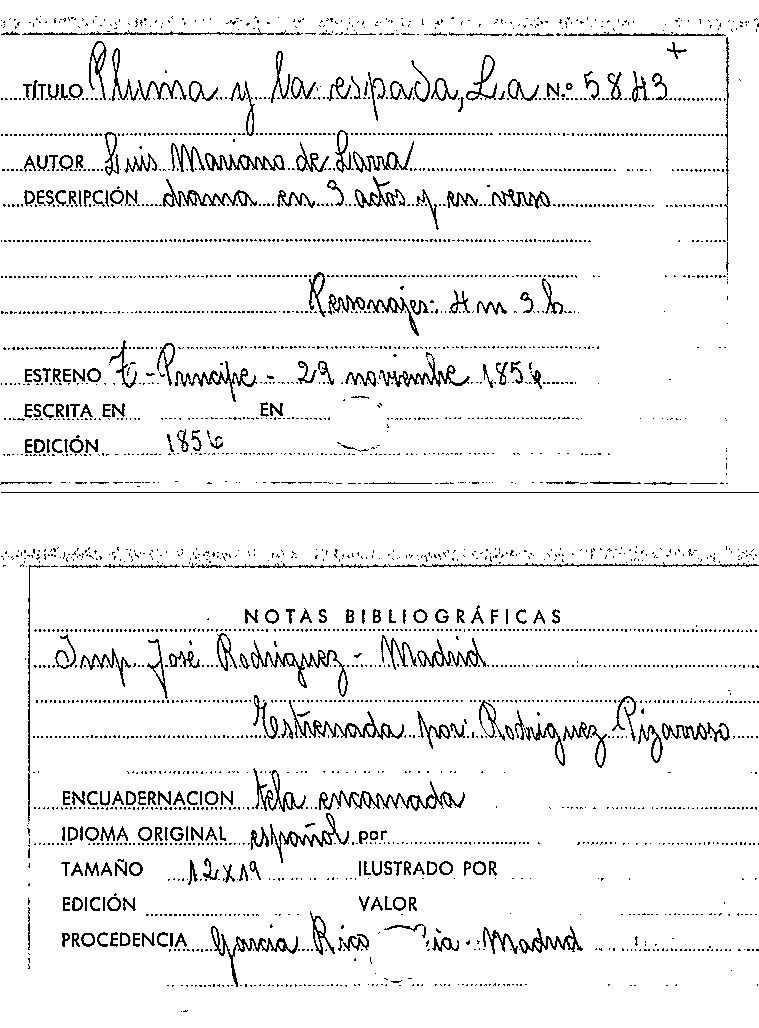 TÍTULO Pluma y la espada, La N.º 5843 +
AUTOR Luis Mariano de Larra
DESCRIPCIÓN drama en 3 actos y en verso
Personajes: 4 m 3 h
ESTRENO T-Principe - 29 noviembre 1856
ESCRITA EN EN
EDICIÓN 1856
NOTAS BIBLIOGRÁFICAS
Imp. José Rodriguez - Madrid
Estrenada por: Rodriguez-Pizarroso
ENCUADERNACION tela encarnada
IDIOMA ORIGINAL español por
TAMAÑO 12x19 ILUSTRADO POR
EDICIÓN VALOR
PROCEDENCIA Garcia Rico - Madrid